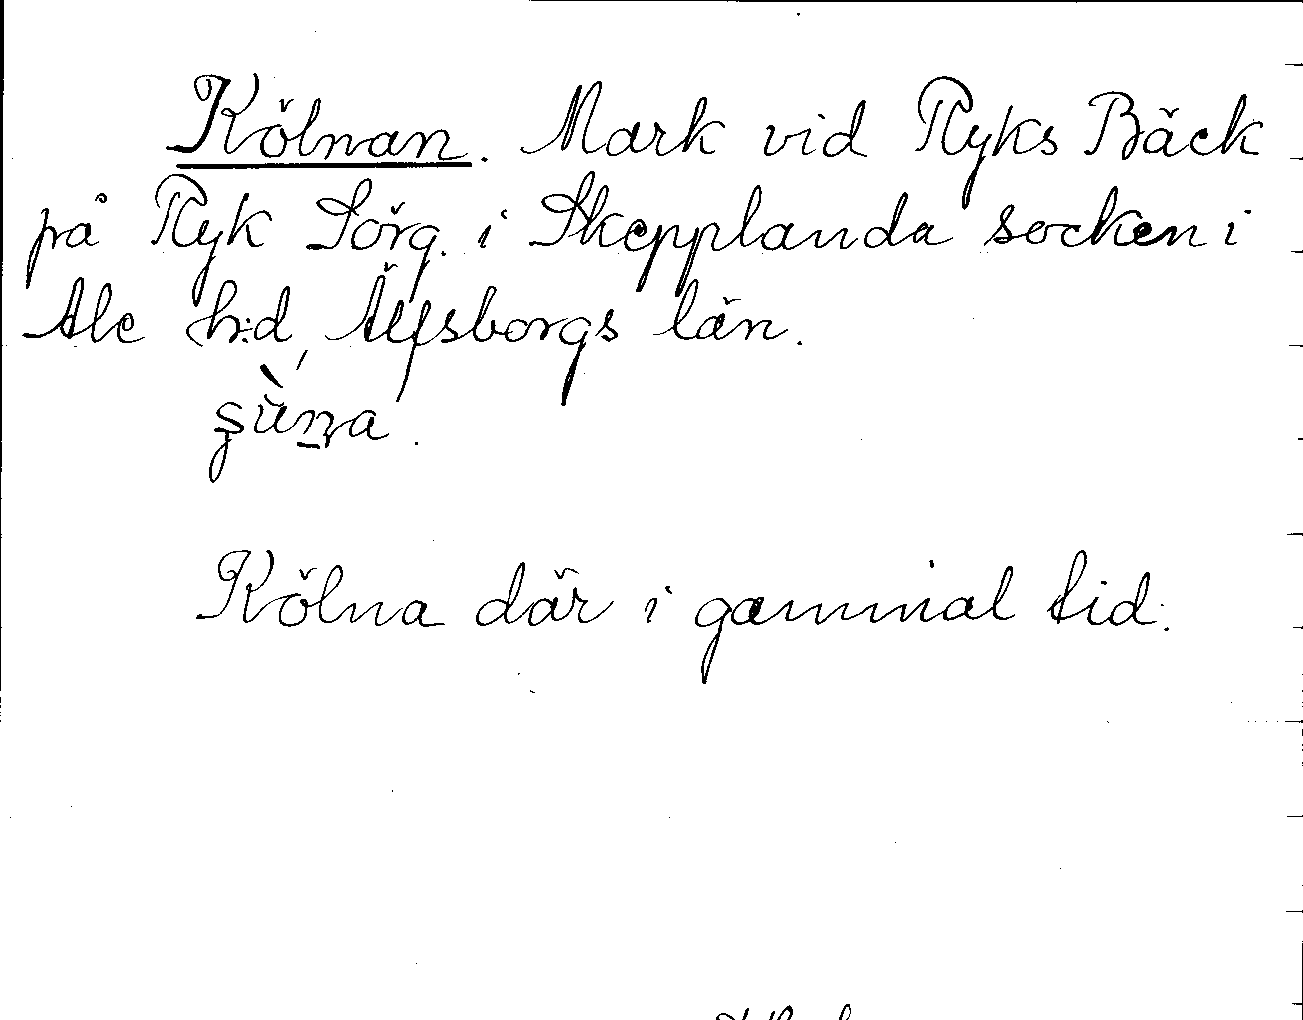 Kölnan. Mark vid Ryks Bäck
på Ryk Sörg. i Skepplanda socken i
Ale h:d, Älfsborgs län.
Kölna där i gammal tid.